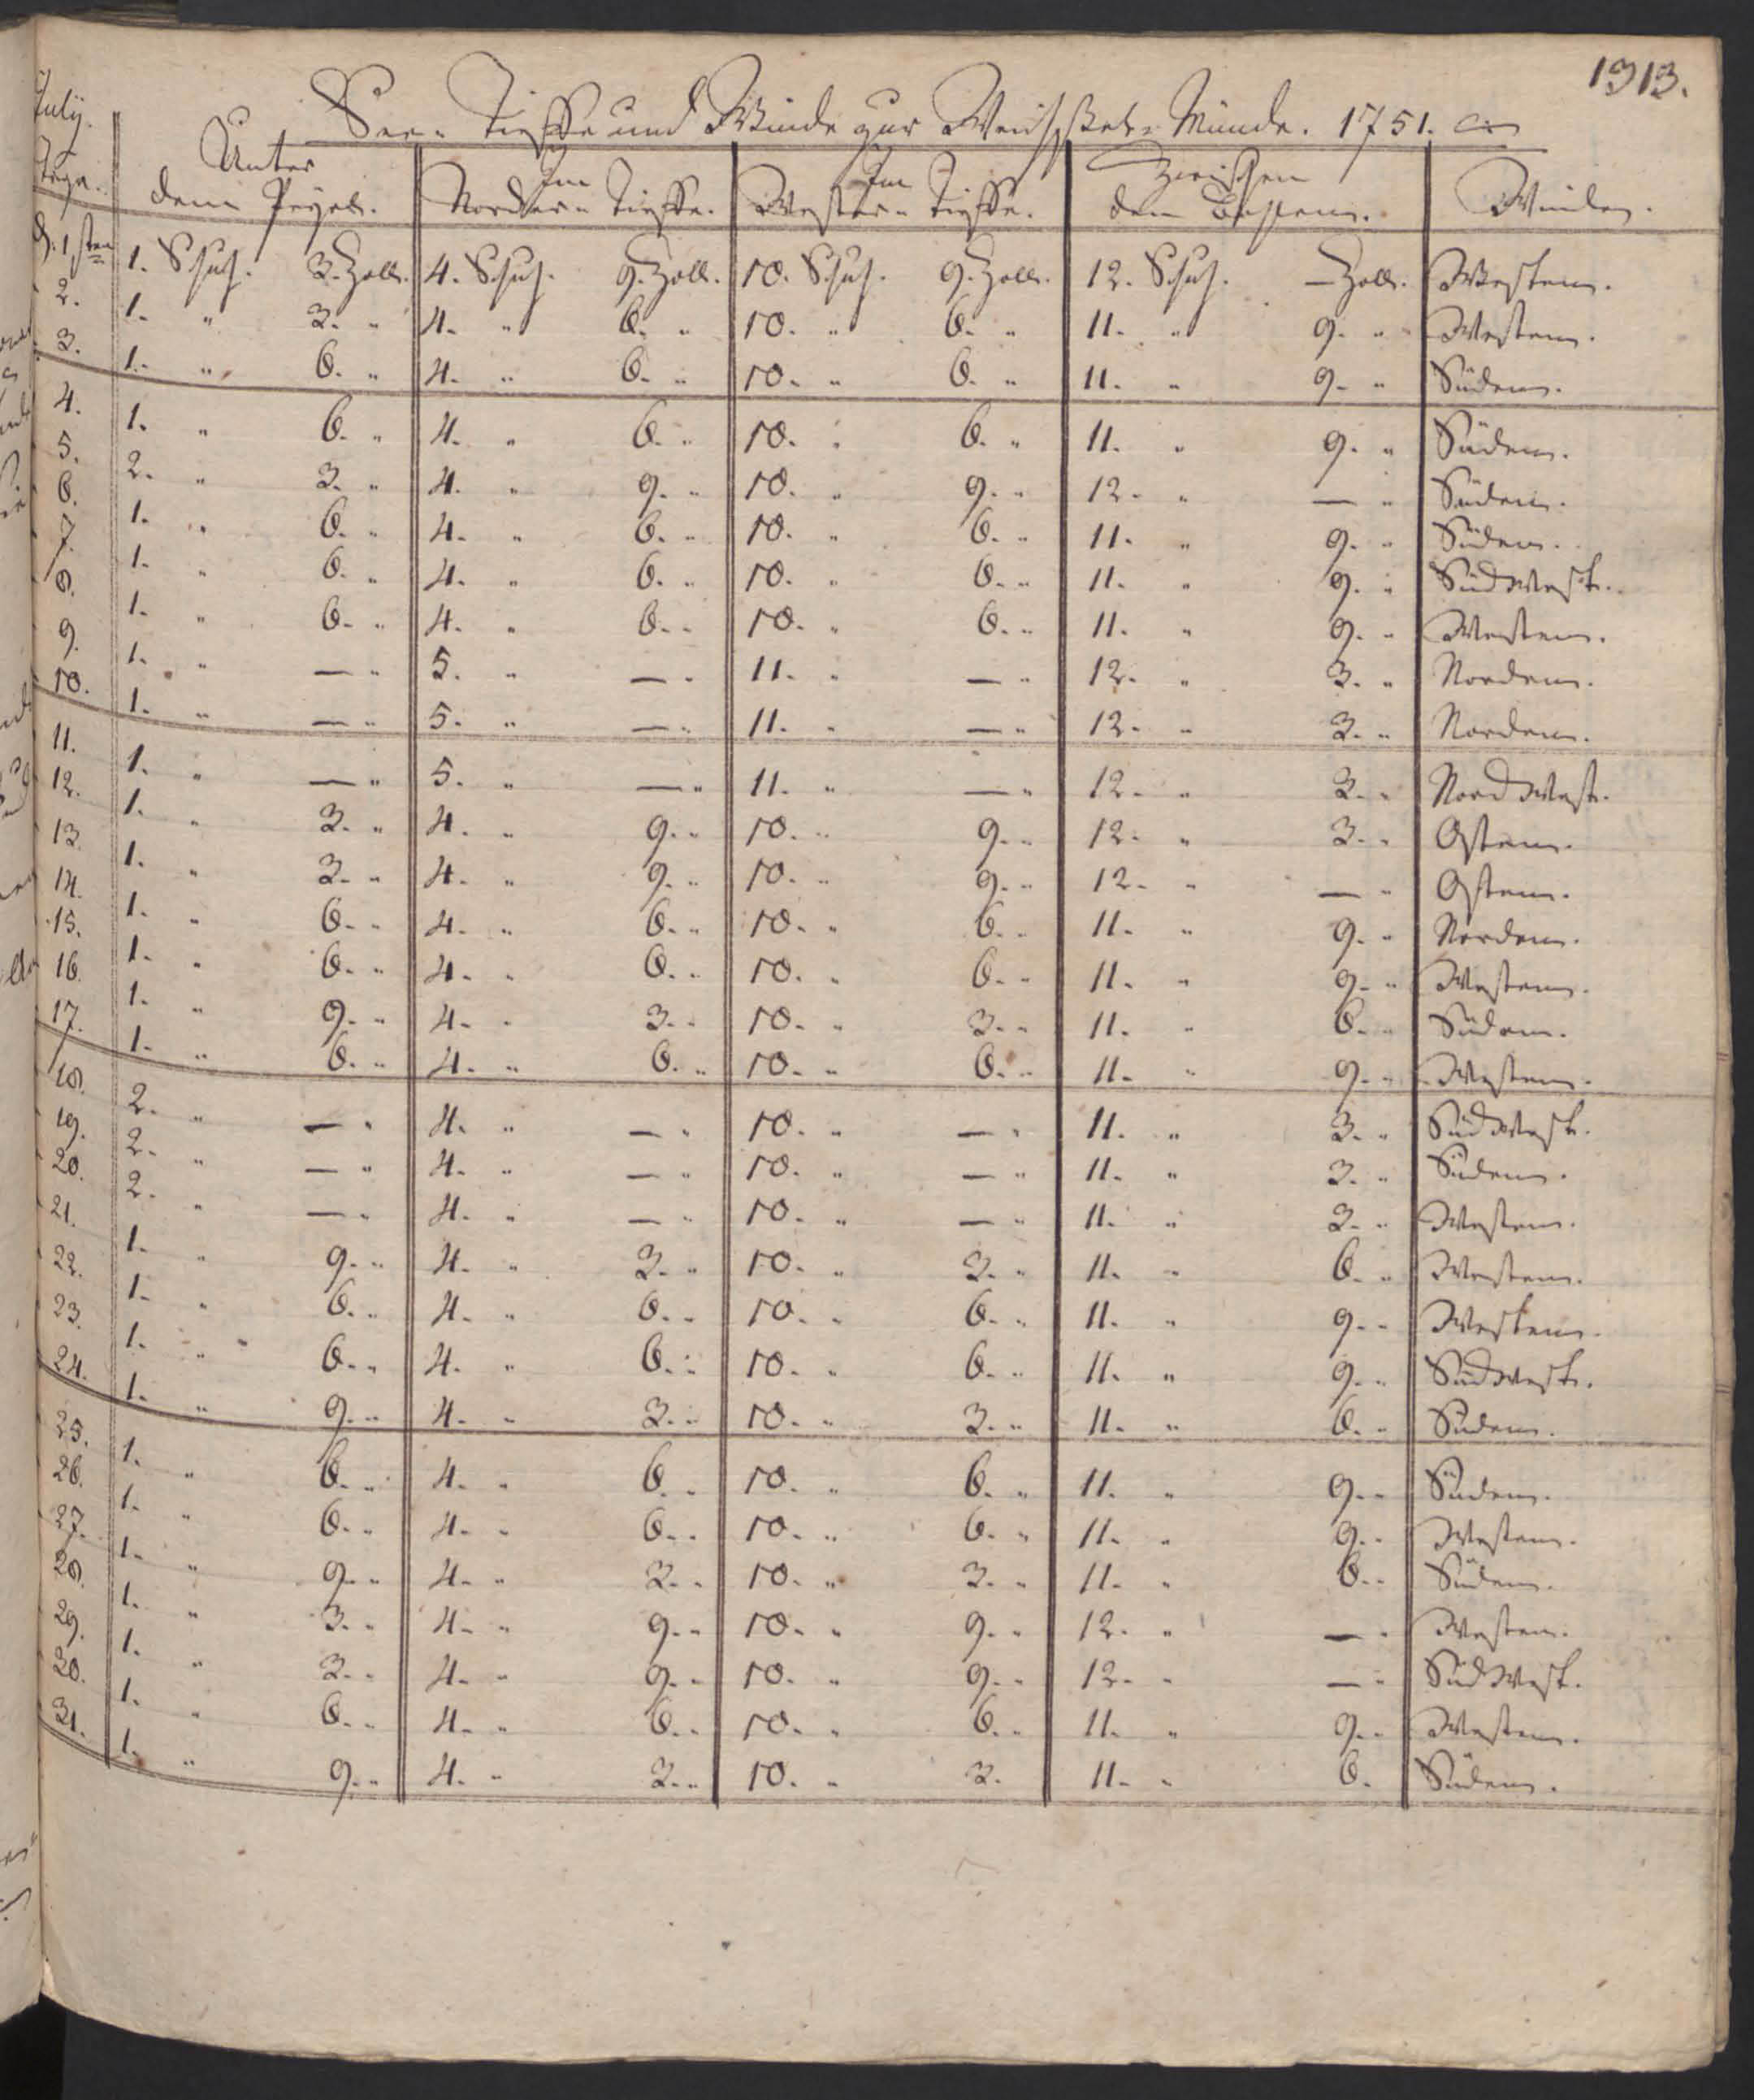 1313.
July.
See- Tieffe und Winde zur Weichsel- Münde. 1751.
Tage. Unter dem Pegel. Im Norder- Tieffe. Im Wester- Tieffe. Zwischen den Winden.
d. 1sten 1. Schuh. 3. Zoll. 4. Schuh. 9. Zoll. 10. Schuh. 9. Zoll. 12. Schuh. — Zoll. Westen.
2. 1. " 3. " 4. " 6. " 10. " 6. " 11. " 9. " Westen.
3. 1. " 6. " 4. " 6. " 10. " 6. " 11. " 9. " Süden.
4. 1. " 6. " 4. " 6. " 10. " 6. " 11. " 9. " Süden.
5. 2. " 3. " 4. " 9. " 10. " 9. " 12. " — " Süden.
6. 1. " 6. " 4. " 6. " 10. " 6. " 11. " 9. " Süden.
7. 1. " 6. " 4. " 6. " 10. " 6. " 11. " 9. " SüdWest.
8. 1. " 6. " 4. " 6. " 10. " 6. " 11. " 9. " Westen.
9. 1. " — " 5. " — " 11. " — " 12. " 3. " Norden.
10. 1. " — " 5. " — " 11. " — " 12. " 3. " Norden.
11. 1. " — " 5. " — " 11. " — " 12. " 3. " NordWest.
12. 1. " 3. " 4. " 9. " 10. " 9. " 12. " 3. " Osten.
13. 1. " 3. " 4. " 9. " 10. " 9. " 12. " — " Osten.
14. 1. " 6. " 4. " 6. " 10. " 6. " 11. " 9. " Norden.
15. 1. " 6. " 4. " 6. " 10. " 6. " 11. " 9. " Westen.
16. 1. " 9. " 4. " 3. " 10. " 3. " 11. " 6. " Süden.
17. 1. " 6. " 4. " 6. " 10. " 6. " 11. " 9. " Westen.
18. 2. " — " 4. " — " 10. " — " 11. " 3. " SüdWest.
19. 2. " — " 4. " — " 10. " — " 11. " 3. " Süden.
20. 2. " — " 4. " — " 10. " — " 11. " 3. " Westen.
21. 1. " 9. " 4. " 3. " 10. " 3. " 11. " 6. " Westen.
22. 1. " 6. " 4. " 6. " 10. " 6. " 11. " 9. " Westen.
23. 1. " 6. " 4. " 6. " 10. " 6. " 11. " 9. " SüdWest.
24. 1. " 9. " 4. " 3. " 10. " 3. " 11. " 6. " Süden.
25. 1. " 6. " 4. " 6. " 10. " 6. " 11. " 9. " Süden.
26. 1. " 6. " 4. " 6. " 10. " 6. " 11. " 9. " Westen.
27. 1. " 9. " 4. " 3. " 10. " 3. " 11. " 6. " Süden.
28. 1. " 3. " 4. " 9. " 10. " 9. " 12. " — " Westen.
29. 1. " 3. " 4. " 9. " 10. " 9. " 12. " — " SüdWest.
30. 1. " 6. " 4. " 6. " 10. " 6. " 11. " 9. " Westen.
31. 1. " 9. " 4. " 3. " 10. " 3. 11. " 6. Süden.